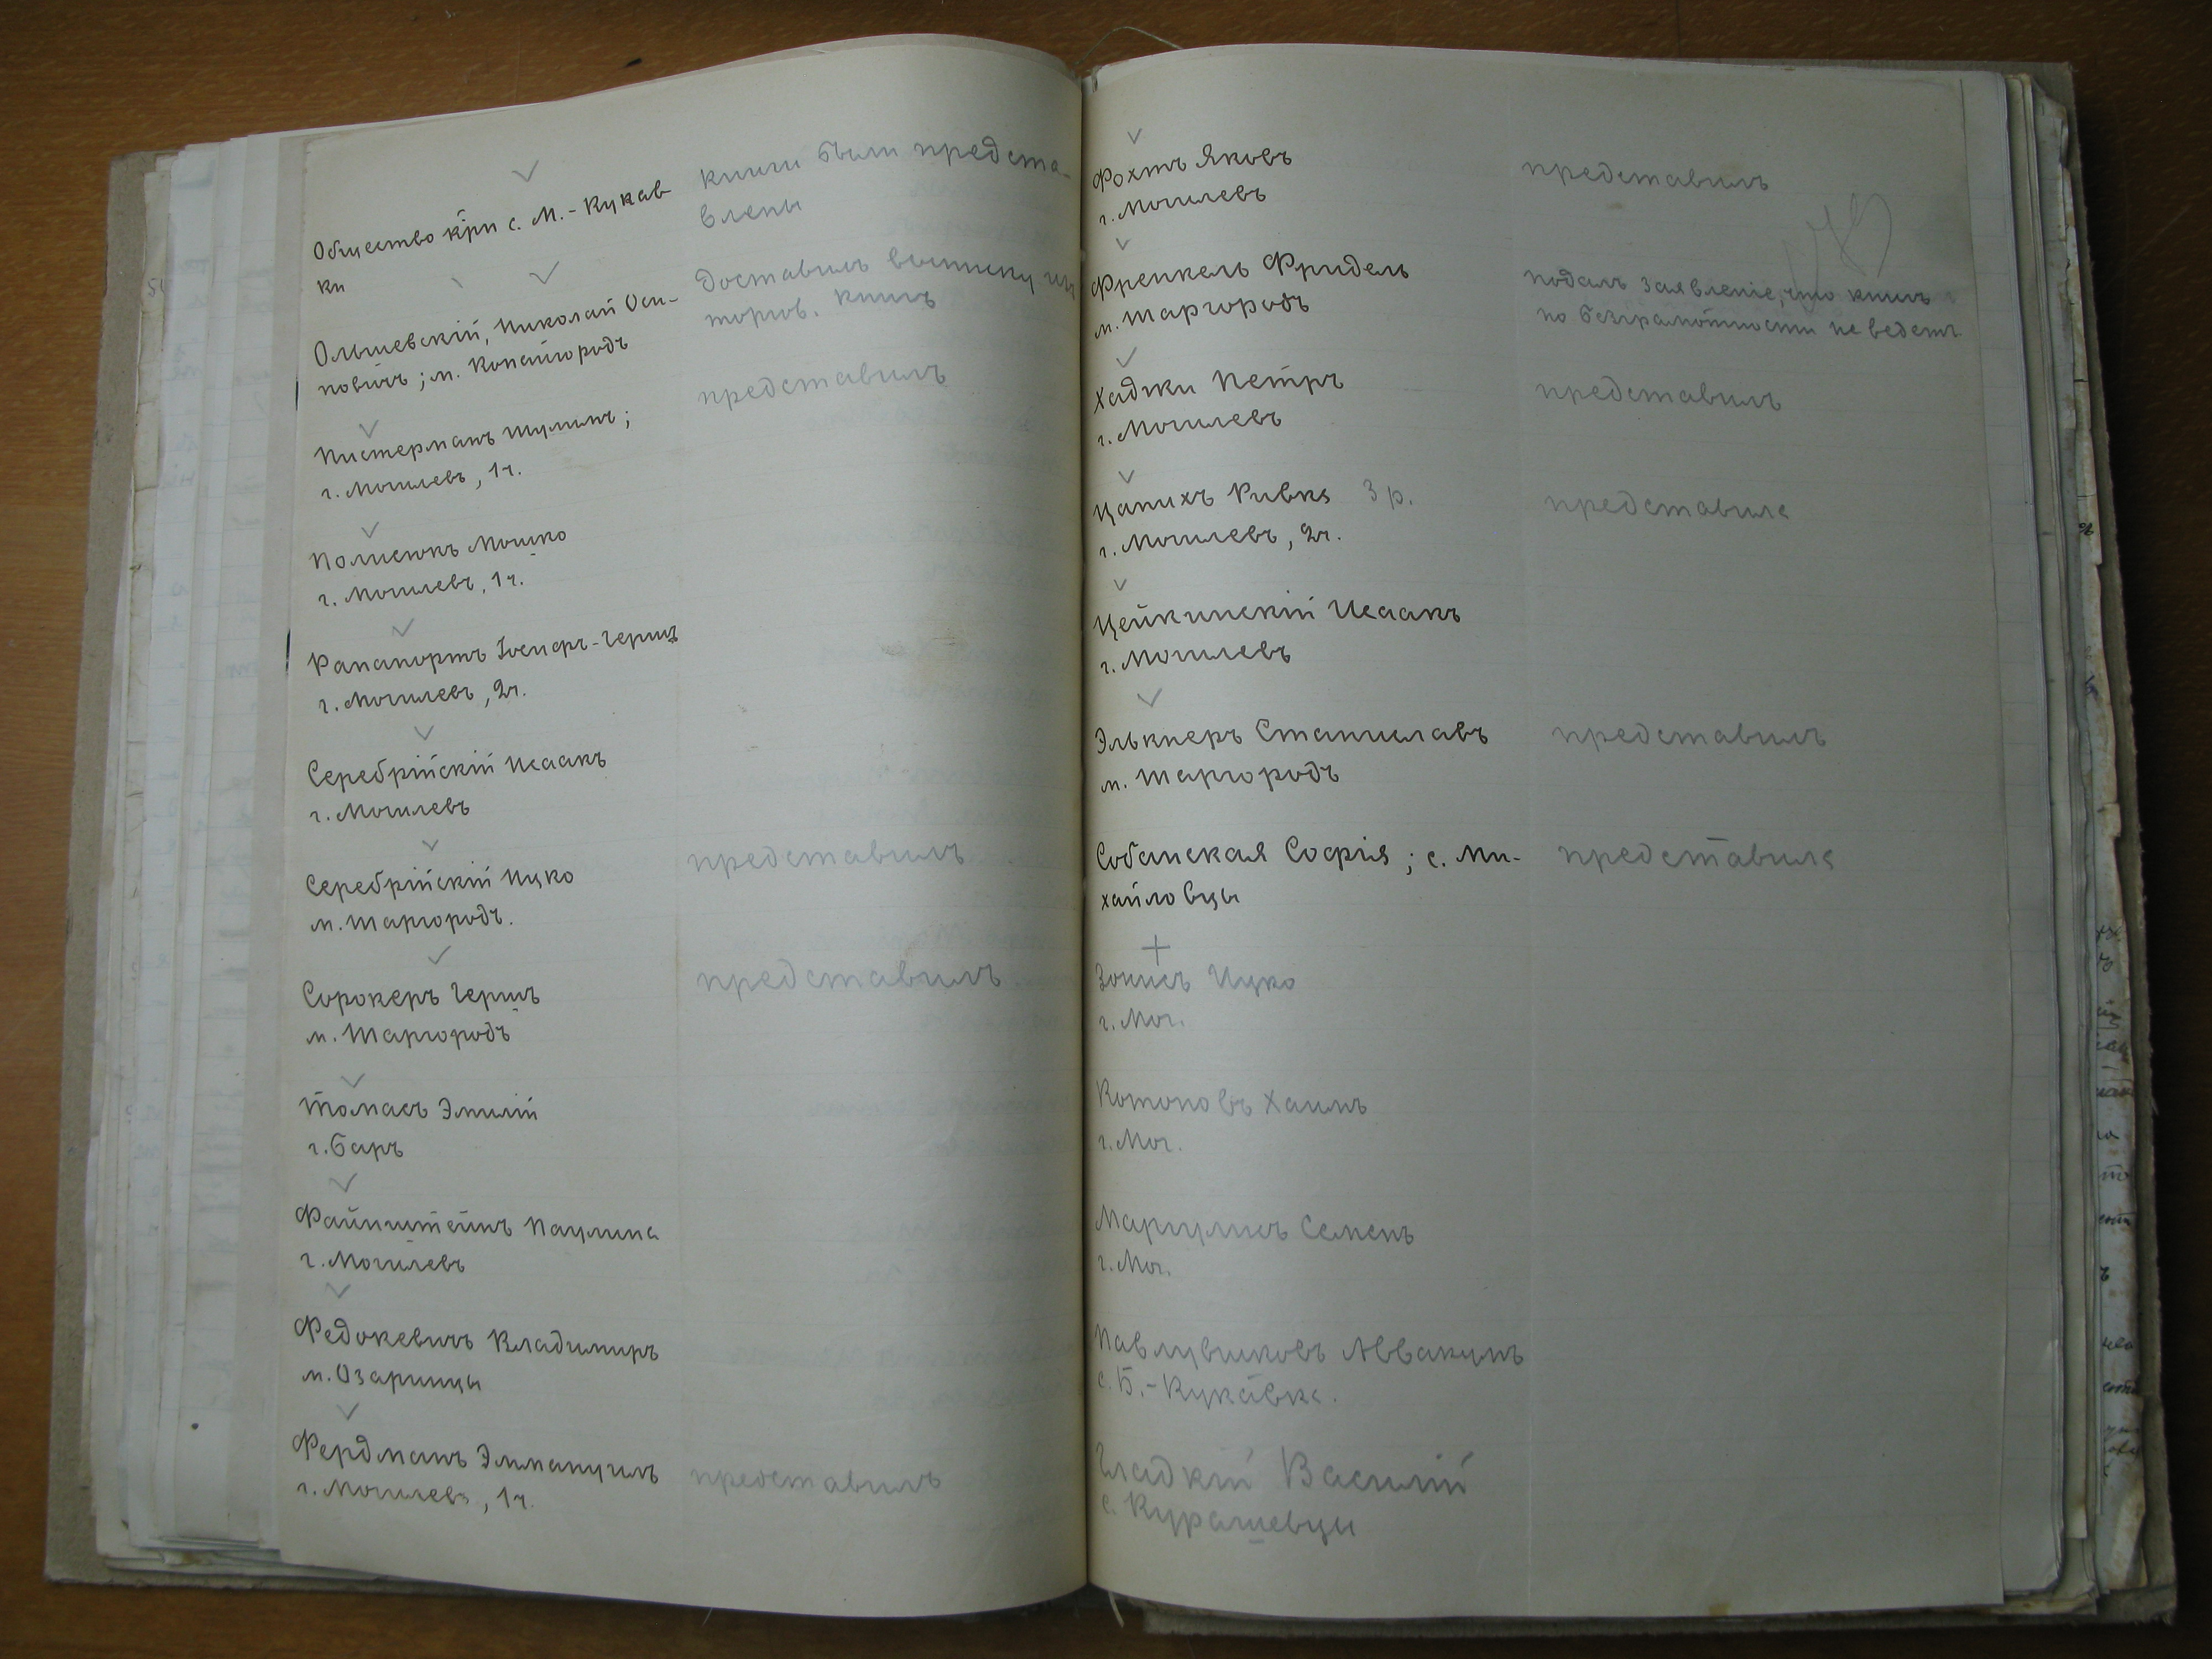 Общество крн с. М.-Кукав-
ки
книги были предста-
влены
Ольшевскій, Николай Оси-
повичъ; м. Копайгородъ
доставилъ выписку изъ
торгов. книгъ
Пистерманъ Шулимъ;
г. Могилевъ, 1ч.
представилъ
Полисюкъ Мошко
г. Могилевъ, 1ч.
Рапапортъ Іосифъ-Гершъ
г. Могилевъ, 2ч.
Серебрійскій Исаакъ
г. Могилевъ
Серебрійскій Ицко
м. Шаргородъ.
представилъ
Сорокеръ Гершъ
м. Шаргородъ
представилъ
Томасъ Эмилій
г. Баръ
Файнштейнъ Паулина
г. Могилевъ
Федокевичъ Владимиръ
м. Озаринцы
Фердманъ Эммануилъ
г. Могилевъ, 1ч.
представилъ
Фохтъ Яковъ
г. Могилевъ
представилъ
Френкель Фридель
м. Шаргородъ
подалъ заявленіе, что книгъ
по безграмотности не ведетъ.
Хаджи Петръ
г. Могилевъ
представилъ
Цапихъ Ривка 3 р.
г. Могилевъ, 2ч.
представила
Цейкинскій Исаакъ
г. Могилевъ
Элькнеръ Станиславъ
м. Шаргородъ
представилъ
Собанская Софія; с. Ми-
хайловцы
представила
Зонисъ Ицко
г. Мог.
Котоновъ Хаимъ
г. Мог.
Маргулисъ Семенъ
г. Мог.
Павлувшковъ Аввакумъ
с. Б.-Кукавка.
Гладкій Василій
с. Курашевцы